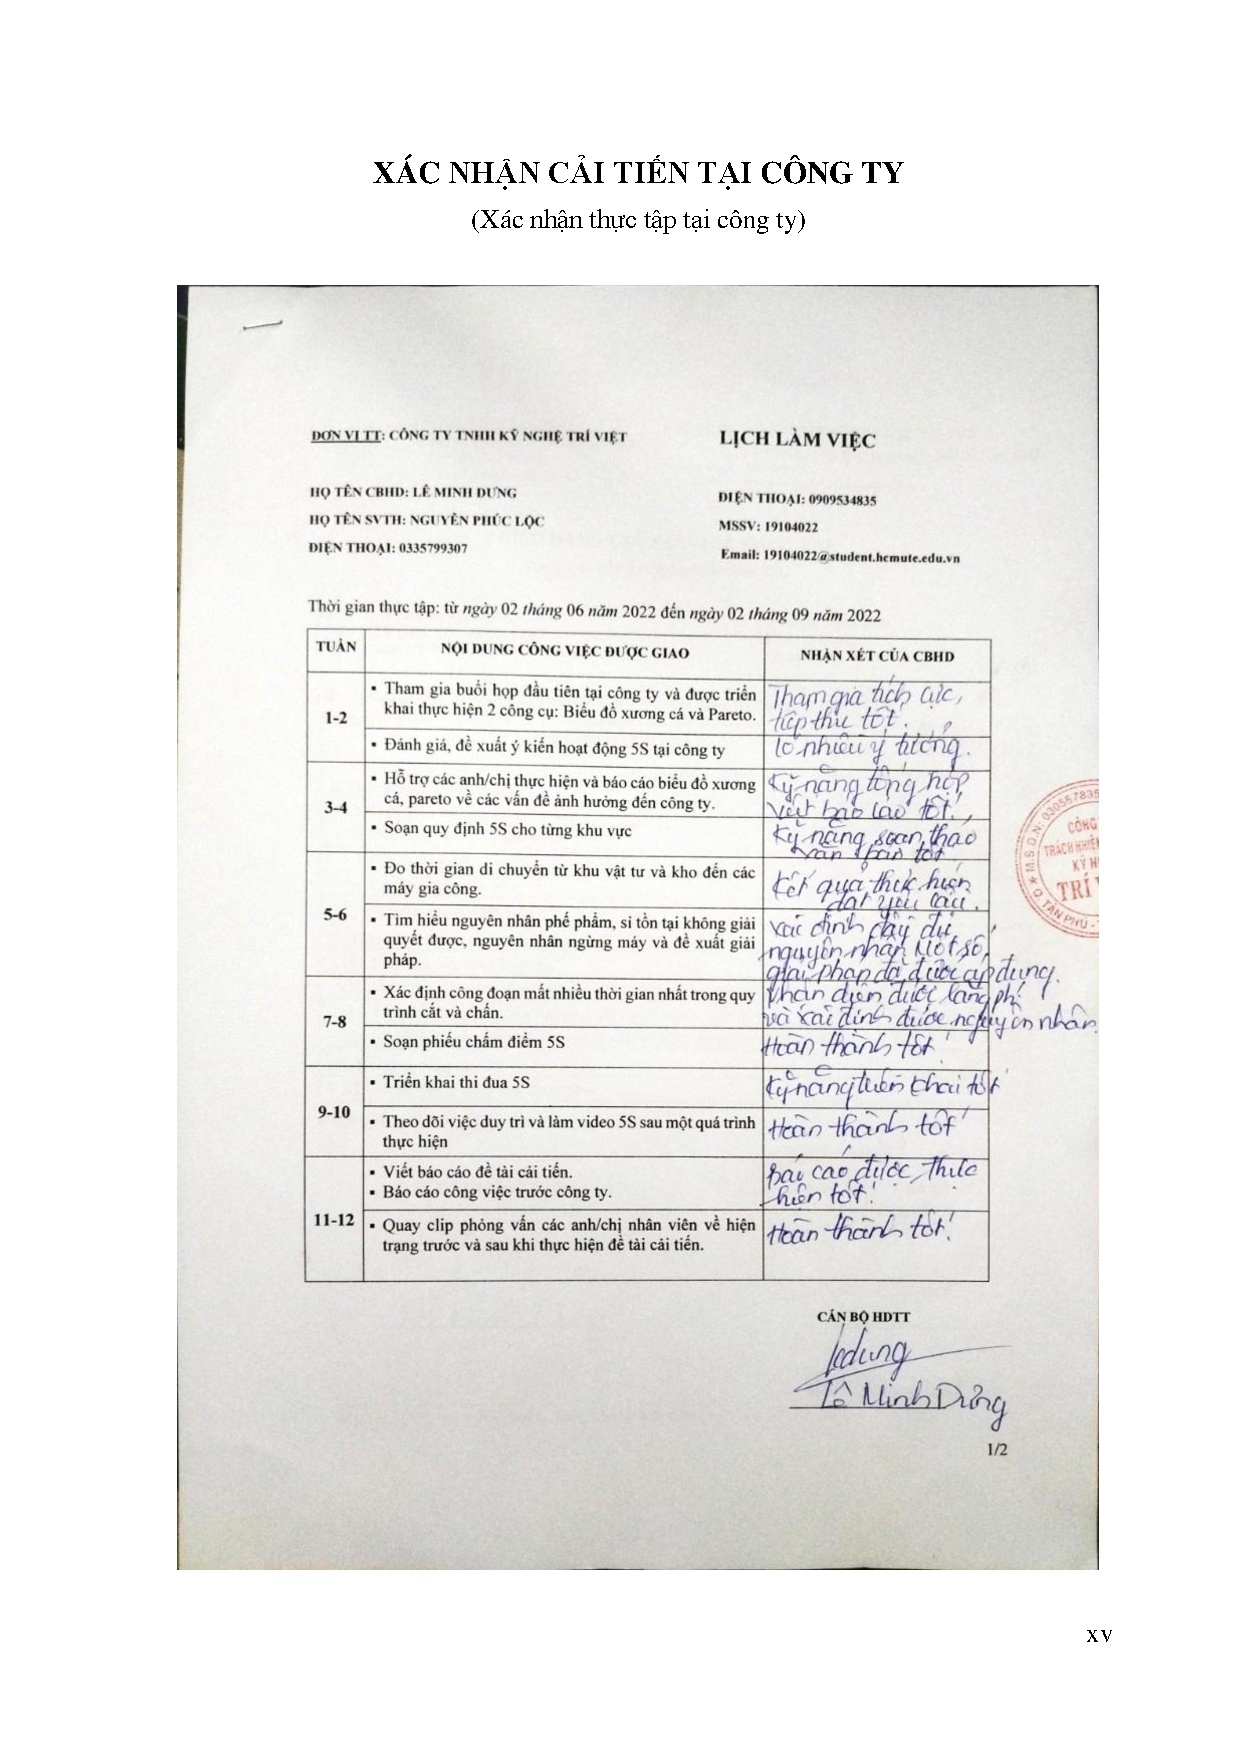 XÁC NHẬN CẢI TIẾN TẠI CÔNG TY
(Xác nhận thực tập tại công ty)
ĐƠN VỊ TT: CÔNG TY TNHH KỸ NGHỆ TRÍ VIỆT
LỊCH LÀM VIỆC
HỌ TÊN CBHD: LÊ MINH DƯNG
ĐIỆN THOẠI: 0909534835
HỌ TÊN SVTH: NGUYỄN PHÚC LỘC
MSSV: 19104022
ĐIỆN THOẠI: 0335799307
Email: 19104022@student.hcmute.edu.vn
Thời gian thực tập: từ ngày 02 tháng 06 năm 2022 đến ngày 02 tháng 09 năm 2022
TUẦN NỘI DUNG CÔNG VIỆC ĐƯỢC GIAO NHẬN XÉT CỦA CBHD
1-2
▪ Tham gia buổi họp đầu tiên tại công ty và được triển
khai thực hiện 2 công cụ: Biểu đồ xương cá và Pareto.
Tham gia tích cực,
tiếp thu tốt.
▪ Đánh giá, đề xuất ý kiến hoạt động 5S tại công ty
Có nhiều ý tưởng.
3-4
▪ Hỗ trợ các anh/chị thực hiện và báo cáo biểu đồ xương
cá, pareto về các vấn đề ảnh hưởng đến công ty.
Kỹ năng tổng hợp
viết báo cáo tốt.
▪ Soạn quy định 5S cho từng khu vực
Kỹ năng soạn thảo
văn bản tốt
5-6
▪ Đo thời gian di chuyển từ khu vật tư và kho đến các
máy gia công.
Kết quả thực hiện
đạt yêu cầu.
▪ Tìm hiểu nguyên nhân phế phẩm, si tồn tại không giải
quyết được, nguyên nhân ngừng máy và đề xuất giải
pháp.
Xác định đầy đủ
nguyên nhân Một số
giải pháp đã được áp dụng.
7-8
▪ Xác định công đoạn mất nhiều thời gian nhất trong quy
trình cắt và chấn.
Nhận diện được lãng phí
và xác định được nguyên nhân
▪ Soạn phiếu chấm điểm 5S
Hoàn thành tốt
9-10
▪ Triển khai thi đua 5S
Kỹ năng triển khai tốt
▪ Theo dõi việc duy trì và làm video 5S sau một quá trình
thực hiện
Hoàn thành tốt
11-12
▪ Viết báo cáo đề tài cải tiến.
▪ Báo cáo công việc trước công ty.
Báo cáo được thực
hiện tốt!
▪ Quay clip phỏng vấn các anh/chị nhân viên về hiện
trạng trước và sau khi thực hiện đề tài cải tiến.
Hoàn thành tốt!
M.S.D.N: 030557835
CÔNG
TRÁCH NHIỆ
TRÍ V
Q. TÂN PHÚ
CÁN BỘ HDTT
Lê Minh Dưng
1/2
xv